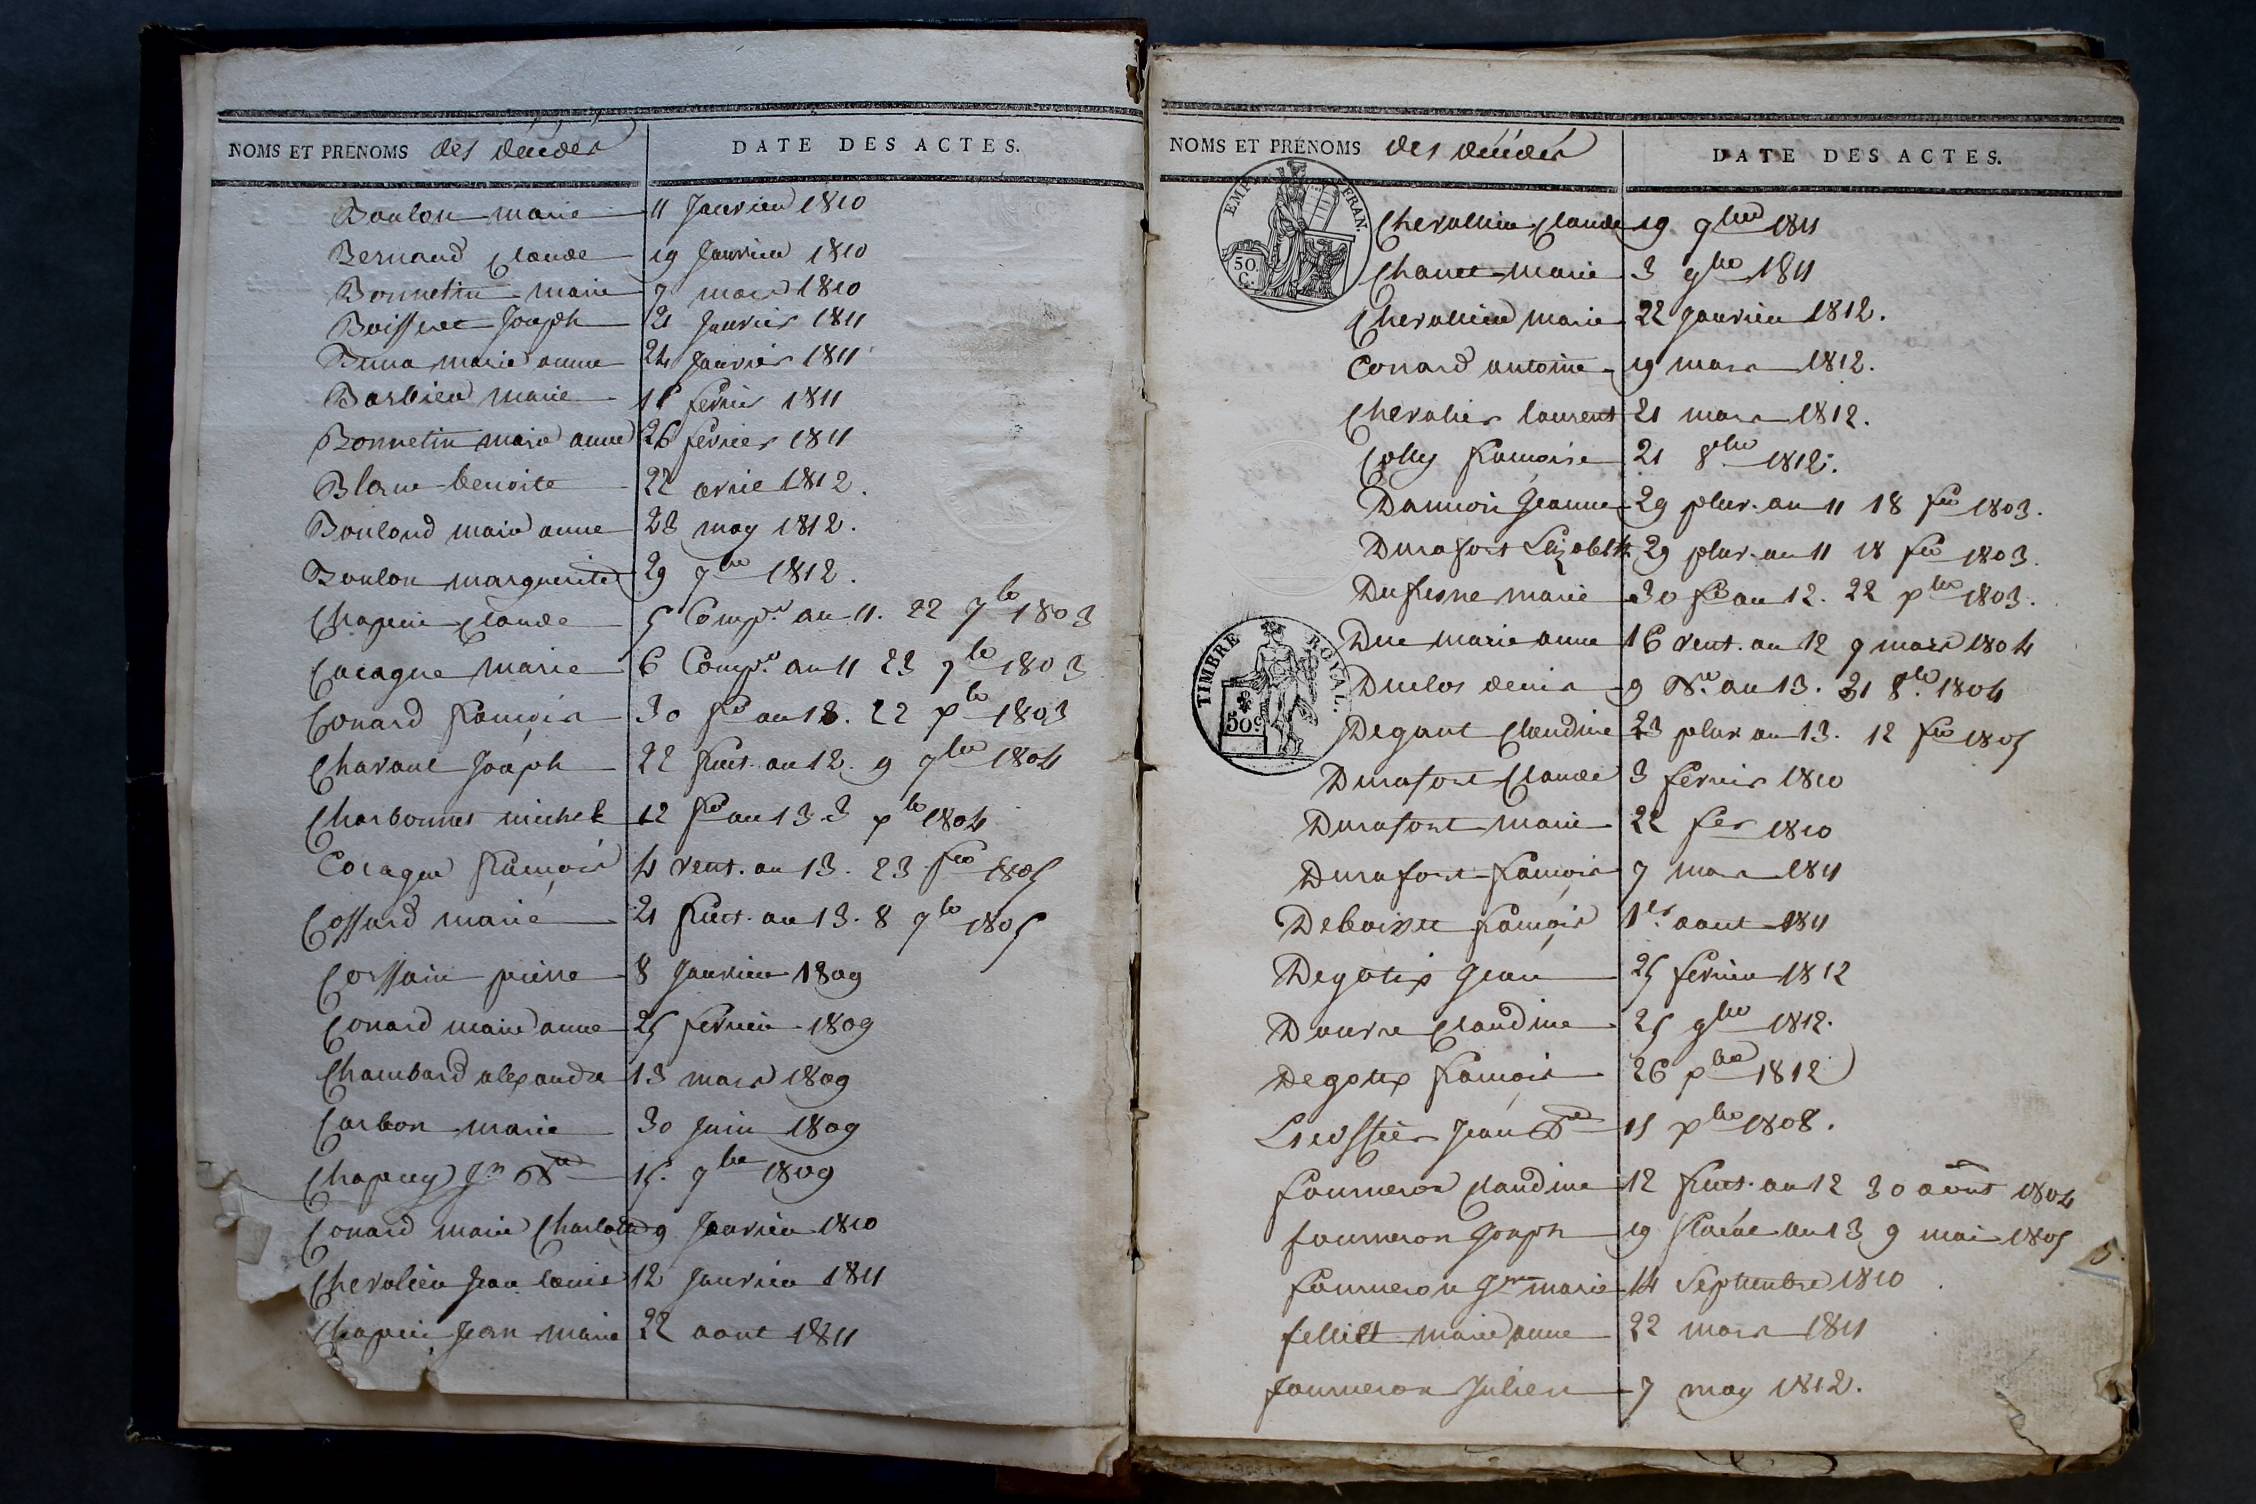 NOMS ET PRENOMS des décédés
DATE DES ACTES.
Boulon marie 11 Janvier 1810
Bernard Claude 19 Janvier 1810
Bonnetin marie 7 mars 1810
Boisseret Joseph 21 Janvier 1811
marie anne 24 Janvier 1811
Barbier marie février 1811
Bonnetin marie anne 26 février 1811
Blanc benoite 22 avril 1812.
Bouland marie anne 23 may 1812.
Boulon marguerite 29 7bre 1812.
Chapuis Claude 5 Comp.re an 11. 22 7bre 1803
Cocagne marie 6 Comp.re an 11 23 7bre 1803
Conard françois 30 fre an 12. 22 xbre 1803
Joseph 22 fruct. an 12. 9 7bre 1804
Charbonnet michel 12 fre an 13 3 xbre 1804
Cocagne françois 4 vent. an 13. 23 fer 1805
Cossard marie 21 fruct. an 13. 8 7bre 1805
Corssain pierre 8 Janvier 1809
Conard marie anne 25 fevrier 1809
Chambard alexandre 13 mars 1809
Carbon marie 30 Juin 1809
Chapuy Jn Bte 15. 7bre 1809
Conard marie Charlotte 9 Janvier 1810
Chevalier Jean louis 12 Janvier 1811
Chapuis Jean marie 22 aout 1811
NOMS ET PRÉNOMS des décédés
DATE DES ACTES.
EMP. FRAN.
50. C.
Chevallier Claude 19 7bre 1811
marie 3 9bre 1811
Chevallier marie 22 Janvier 1812.
Conard antoine 19 mars 1812.
Chevalier laurent 21 mars 1812.
Colly françoise 21 8bre 1812.
Jeanne 29 pluv. an 11 18 fer 1803.
Durafort Elizabeth 29 pluv. an 11 18 fer 1803.
Dufresne marie 30 fre an 12. 22 xbre 1803.
Duc marie anne 16 vent. an 12 7 mars 1804
TIMBRE ROYAL.
50c
Duclos denis 9 Bre an 13. 31 8bre 1804
Degaut Claudine 23 pluv an 13. 12 fer 1805
Durafort Claude 3 fevrier 1810
Durafort marie 22 fer 1810
Durafort françois 7 mars 1811
françois 1er aout 1811
Degotix Jean 25 fevrier 1812
Claudine 25 9bre 1812.
Degotix françois 26 xbre 1812
Jean Bte 15 xbre 1808.
fourneron Claudine 12 fruct. an 12 30 aout 1804
fourneron Joseph 19 floréal an 13 9 mai 1805
5.
fourneron Jne marie 14 Septembre 1810
marie anne 22 mars 1811
fourneron Julien 7 may 1812.